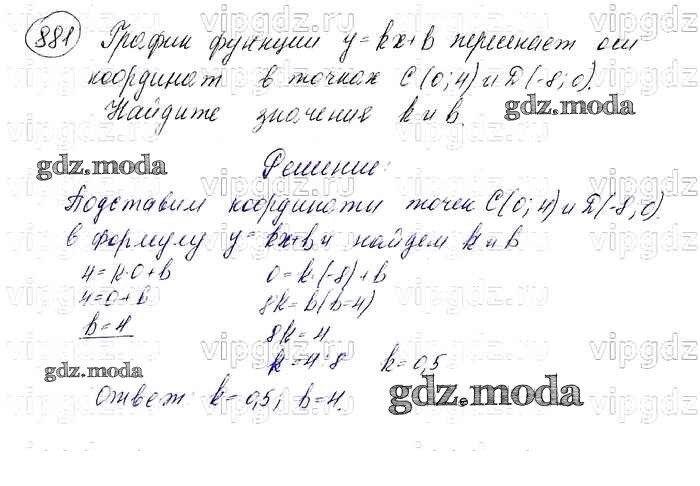 881 График функции y=kx+b пересекает оси
координат в точках C(0;4) и D(-8;0).
Найдите значения k и b.
gdz.moda
Решение:
gdz.moda
Подставим координаты точек C(0;4) и D(-8;0)
в формулу y=kx+b и найдем k и b
4=k·0+b
4=0+b
b=4
0=k·(-8)+b
8k=b(b=4)
8k=4
k=4:8 k=0,5
gdz.moda
Ответ: k=0,5; b=4.
gdz.moda
vipgdz.ru